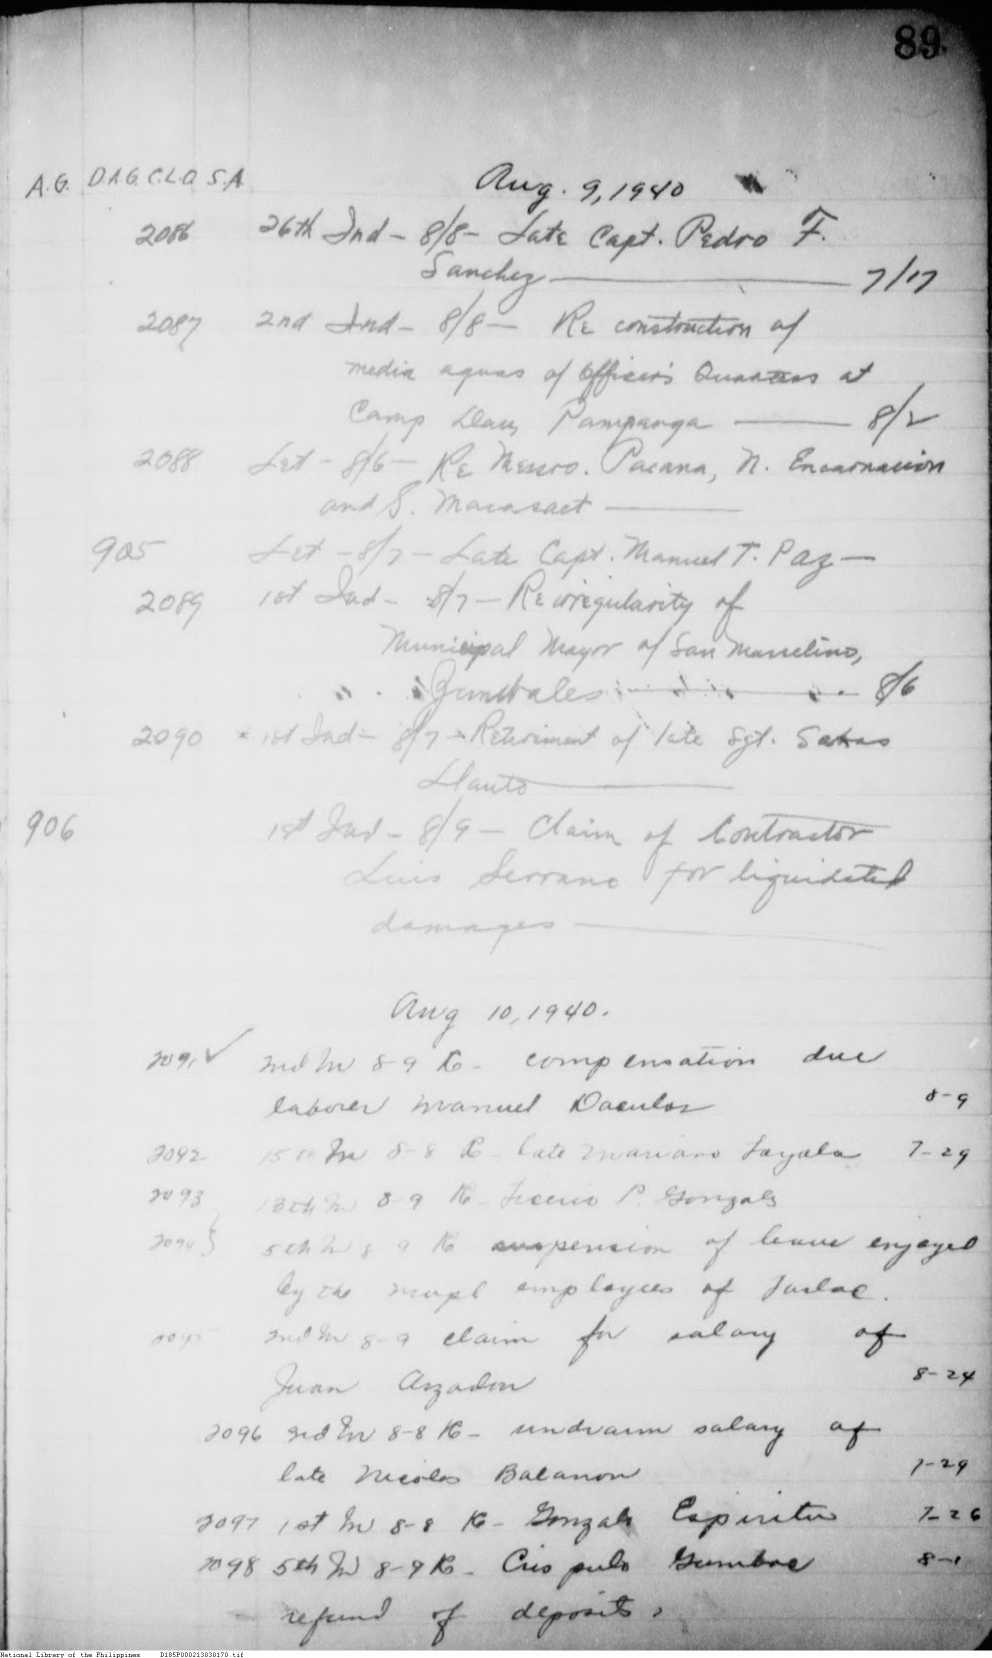 89
A.G. D.A.G. C.L.O. S.A.
Aug. 9, 1940
2086 26th Ind - 8/8 - Late Capt. Pedro F.
Sanchez — 7/17
2087 2nd Ind - 8/8 — Re construction of
media aguas of Officer's Quarters at
Camp Dau, Pampanga — 8/2
2088 Let - 8/6 - Re Messrs. Pacana, N. Encarnacion
and S. Macasaet —
905 Let - 8/7 - Late Capt. Manuel T. Paz —
2089 1st Ind - 8/7 - Re irregularity of
Municipal Mayor of San Marcelino,
Zambales — 8/6
2090 1st Ind - 8/7 - Retirement of late Sgt.
Llauto —
906 1st Ind - 8/9 - Claim of Contractor
Luis Serrano for liquidated
damages —
Aug 10, 1940.
2091 ✓ 2nd In 8-9 K - compensation due
laborer Manuel Daculos 8-9
2092 15th In 8-8 K - late Mariano Tayala 7-29
2093 13th In 8-9 K - P. Gonzales
2094 5th In 8 9 K suspension of leave enjoyed
by the mupl employees of Tarlac.
2095 2nd In 8-9 claim for salary of
Juan Arzadon 8-24
2096 3rd In 8-8 K - undrawn salary of
late Nicolas Balanon 7-29
2097 1st In 8-8 K - Gonzalo Espiritu 7-26
2098 5th In 8-9 K - Crispulo Gumboc 8-1
refund of deposits,
National Library of the Philippines D185P000213030170.tif